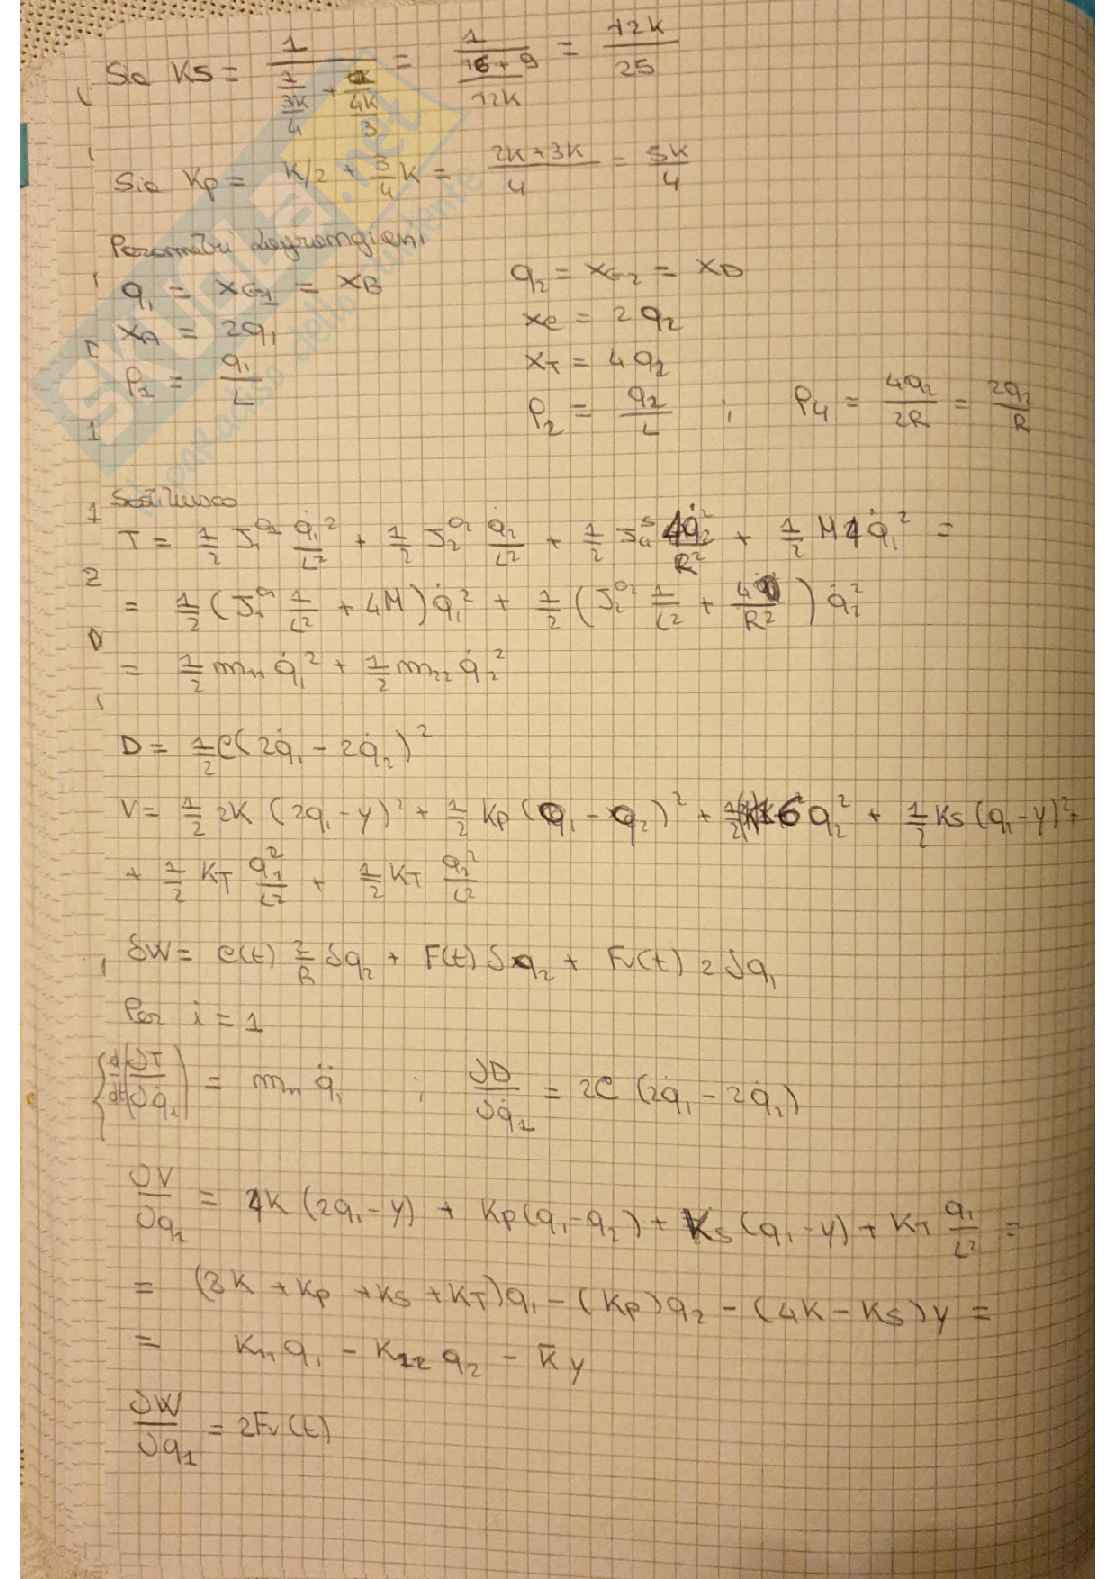 Sia KS = 1/(1/(3K/4) + 1/(4K/3)) = 1/((16+9)/12K) = 12K/25
Sia Kp = K/2 + 3/4 K = (2K+3K)/4 = 5K/4
Parametri Lagrangiani
q₁ = xG₁ = xB
q₂ = xG₂ = xD
xA = 2q₁
xC = 2q₂
xT = 4q₂
ρ₁ = q₁/L
ρ₂ = q₂/L ; ρ₄ = 4q₂/2R = 2q₂/R
T = 1/2 J₁^O₁ q̇₁²/L² + 1/2 J₂^O₂ q̇₂/L² + 1/2 J₄^S 4q̇₂²/R² + 1/2 M 4 q̇₁² =
= 1/2 (J₁^O₁ 1/L² + 4M) q̇₁² + 1/2 (J₂^O₂ 1/L² + 4/R²) q̇₂²
= 1/2 m₁₁ q̇₁² + 1/2 m₂₂ q̇₂²
D = 1/2 C(2q̇₁ - 2q̇₂)²
V = 1/2 2K (2q₁ - y)² + 1/2 Kp (q₁ - q₂)² + 1/2 16 q₂² + 1/2 Ks (q₁ - y)² +
+ 1/2 KT q₁²/L² + 1/2 KT q₂²/L²
δW = C(t) 2/R δq₂ + F(t) δq₂ + Fv(t) 2 δq₁
Per i = 1
{ d/dt (∂T/∂q̇₁) = m₁₁ q̈₁ ; ∂D/∂q̇₁ = 2C (2q̇₁ - 2q̇₂)
∂V/∂q₁ = 4K (2q₁ - y) + Kp (q₁ - q₂) + Ks (q₁ - y) + KT q₁/L² =
= (8K + Kp + Ks + KT) q₁ - (Kp) q₂ - (4K - Ks) y =
= K₁₁ q₁ - K₁₂ q₂ - K̄ y
∂W/∂q₁ = 2Fv(t)